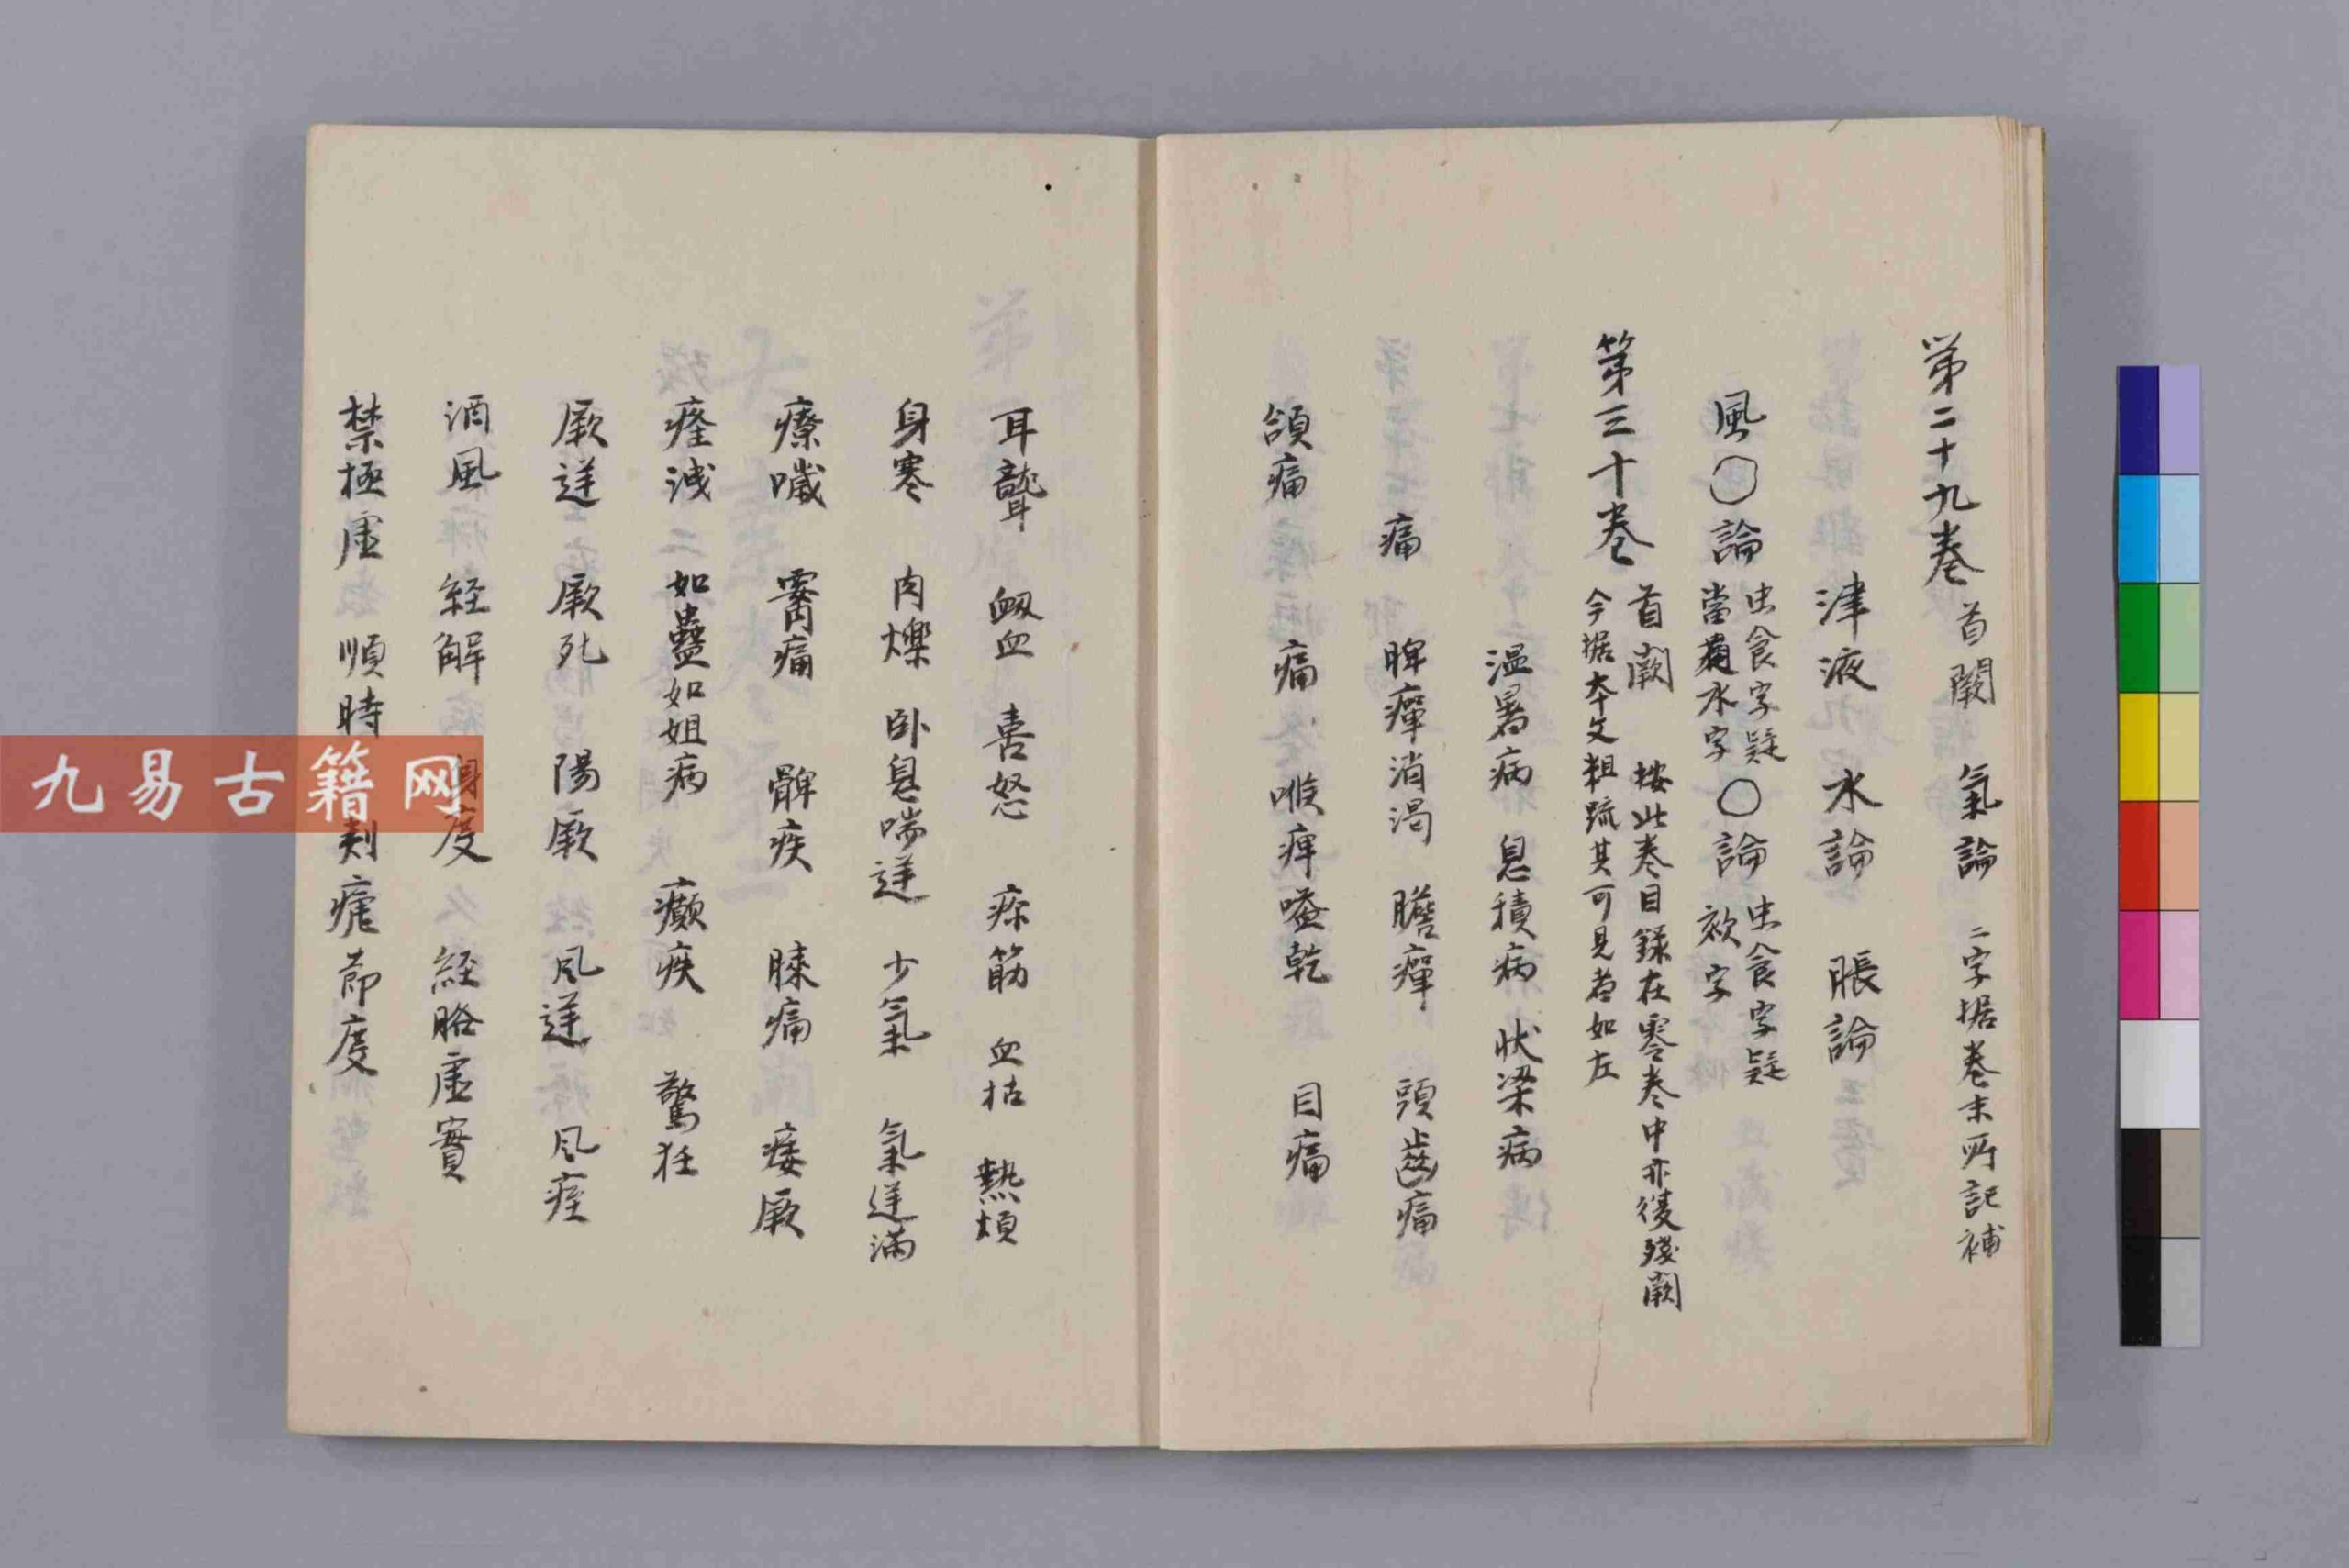 第二十九卷 首闕 氣論 二字据卷末所記補
津液 水論 脹論
風○論 虫食字疑當有水字 ○論 虫食字疑欬字
第三十卷 首闕 按此卷目錄在零卷中亦復殘闕今据本文粗疏其可見者如左
温暑病 息積病 伏梁病
痛 脾癉消渴 膽癉 頭齒痛
頷痛 痛 喉痺嗌乾 目痛
耳聾 衂血 喜怒 疹筋 血枯 熱煩
身寒 肉爍 卧息喘逆 少氣 氣逆滿
療噦 腰痛 髀疾 膝痛 痿厥
痊洩 如蠱如姐病 癲疾 驚狂
厥逆 厥死 陽厥 風逆 風痊
酒風 経解 身度 経胳虛實
禁極虛 順時 刺瘧節度
九易古籍网